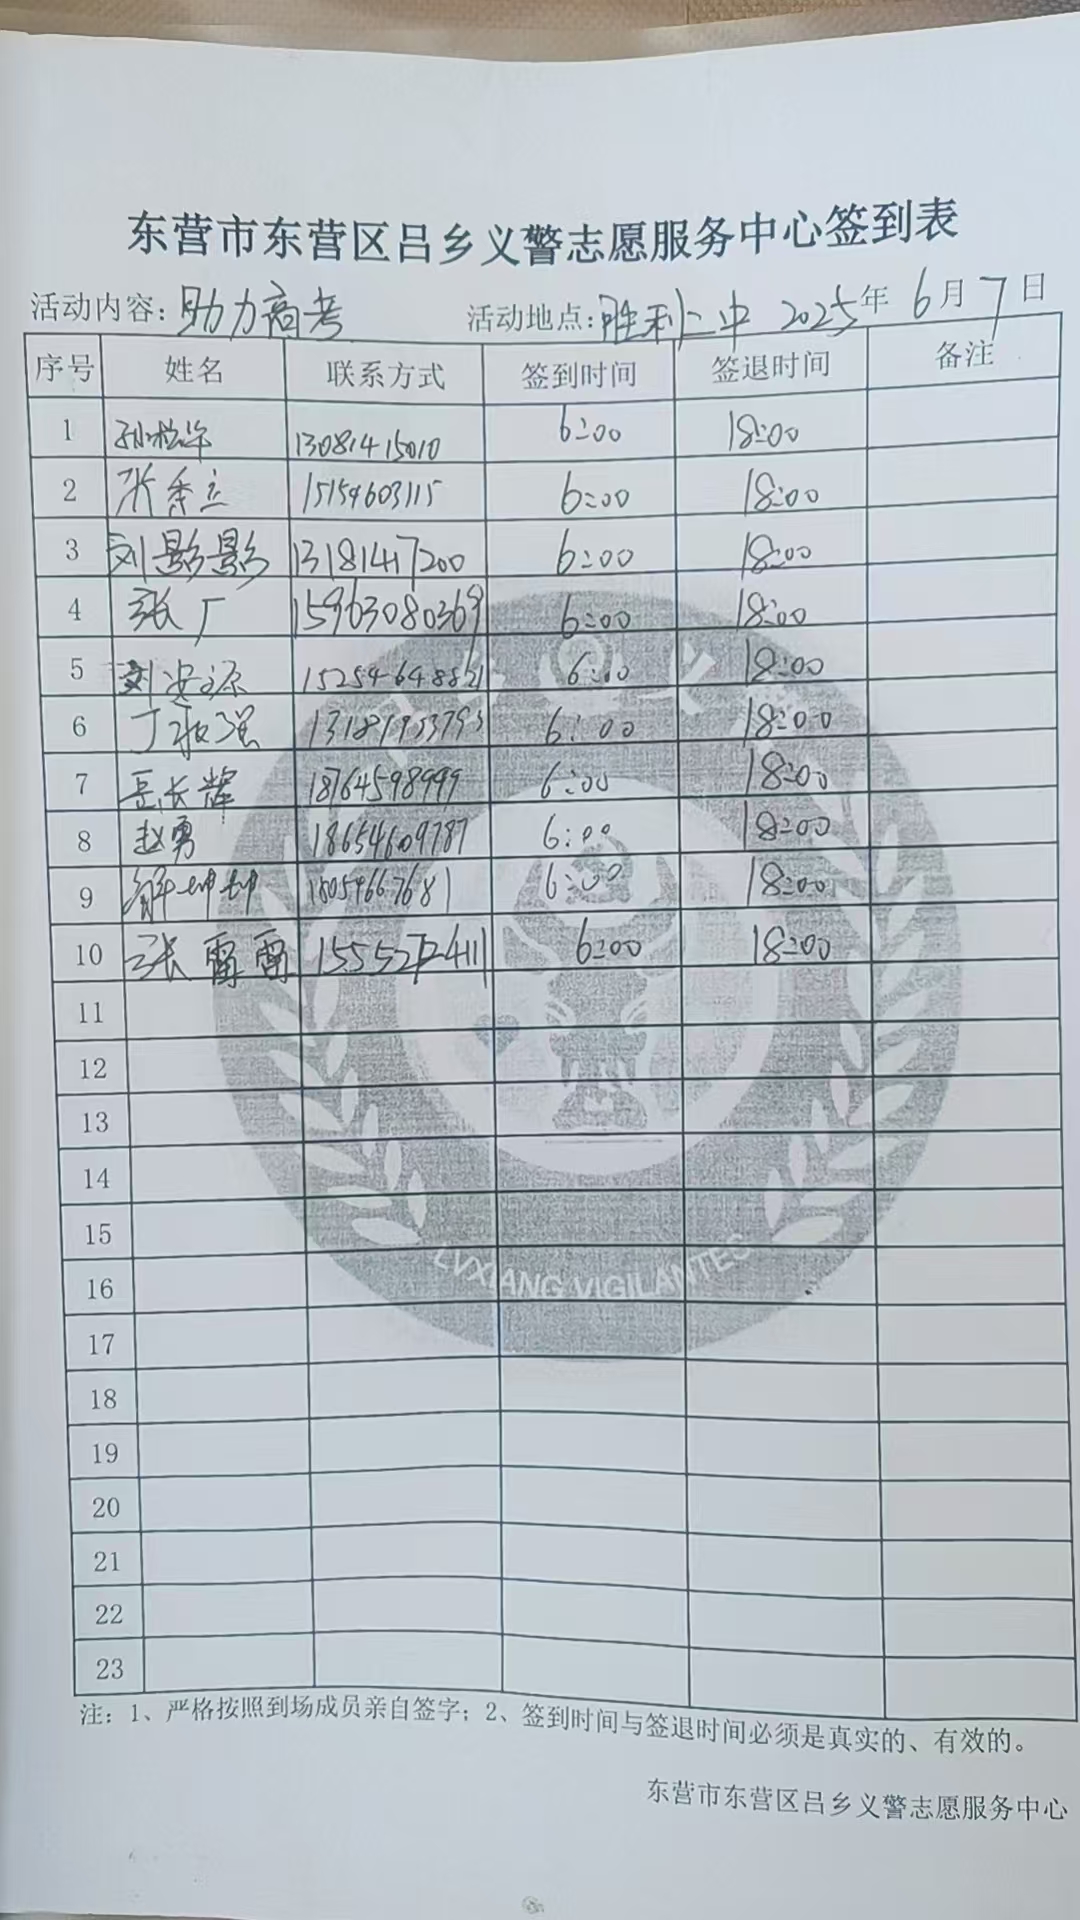 东营市东营区吕乡义警志愿服务中心签到表
活动内容：助力高考 活动地点：胜利二中 2025年 6月 7日
序号 姓名 联系方式 签到时间 签退时间 备注
1 13081415010 6:00 18:00
2 张秀立 15154603115 6:00 18:00
3 刘影影 13181417200 6:00 18:00
4 张广 15963080369 6:00 18:00
5 刘安源 15254648821 6:00 18:00
6 6:00 18:00
7 岳长辉 18764598999 6:00 18:00
8 赵勇 18654609787 6:00 18:00
9 解坤坤 18054667681 6:00 18:00
10 张雷雷 6:00 18:00
11
12
13
14
15
16
17
18
19
20
21
22
23
LVXIANG VIGILANTES
注：1、严格按照到场成员亲自签字；2、签到时间与签退时间必须是真实的、有效的。
东营市东营区吕乡义警志愿服务中心